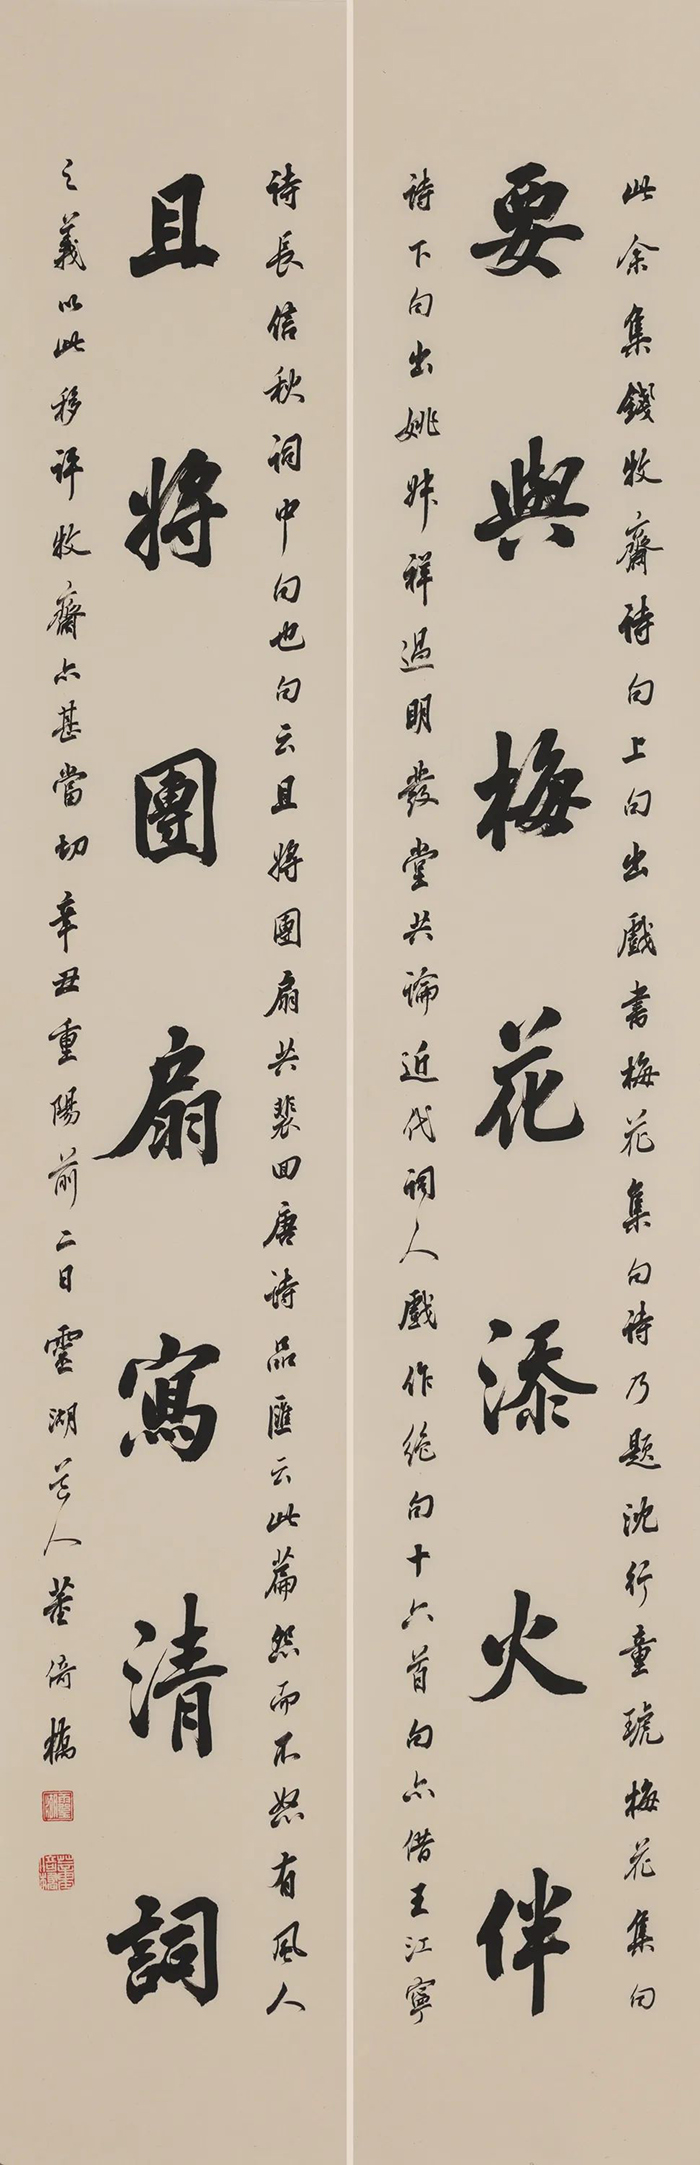 此余集錢牧齋詩句上句出戲書梅花集句詩乃題沈行童琥梅花集句
要與梅花添火伴
詩下句出姚叔祥過明發堂共論近代詞人戲作絕句十六首句亦借王江寧
詩長信秋詞中句也句云且將團扇共裴回唐詩品匯云此篇怨而不怒有風人
且將團扇寫清詞
之義以此移評牧齋亦甚當切辛丑重陽前二日靈湖芒人董倚樵